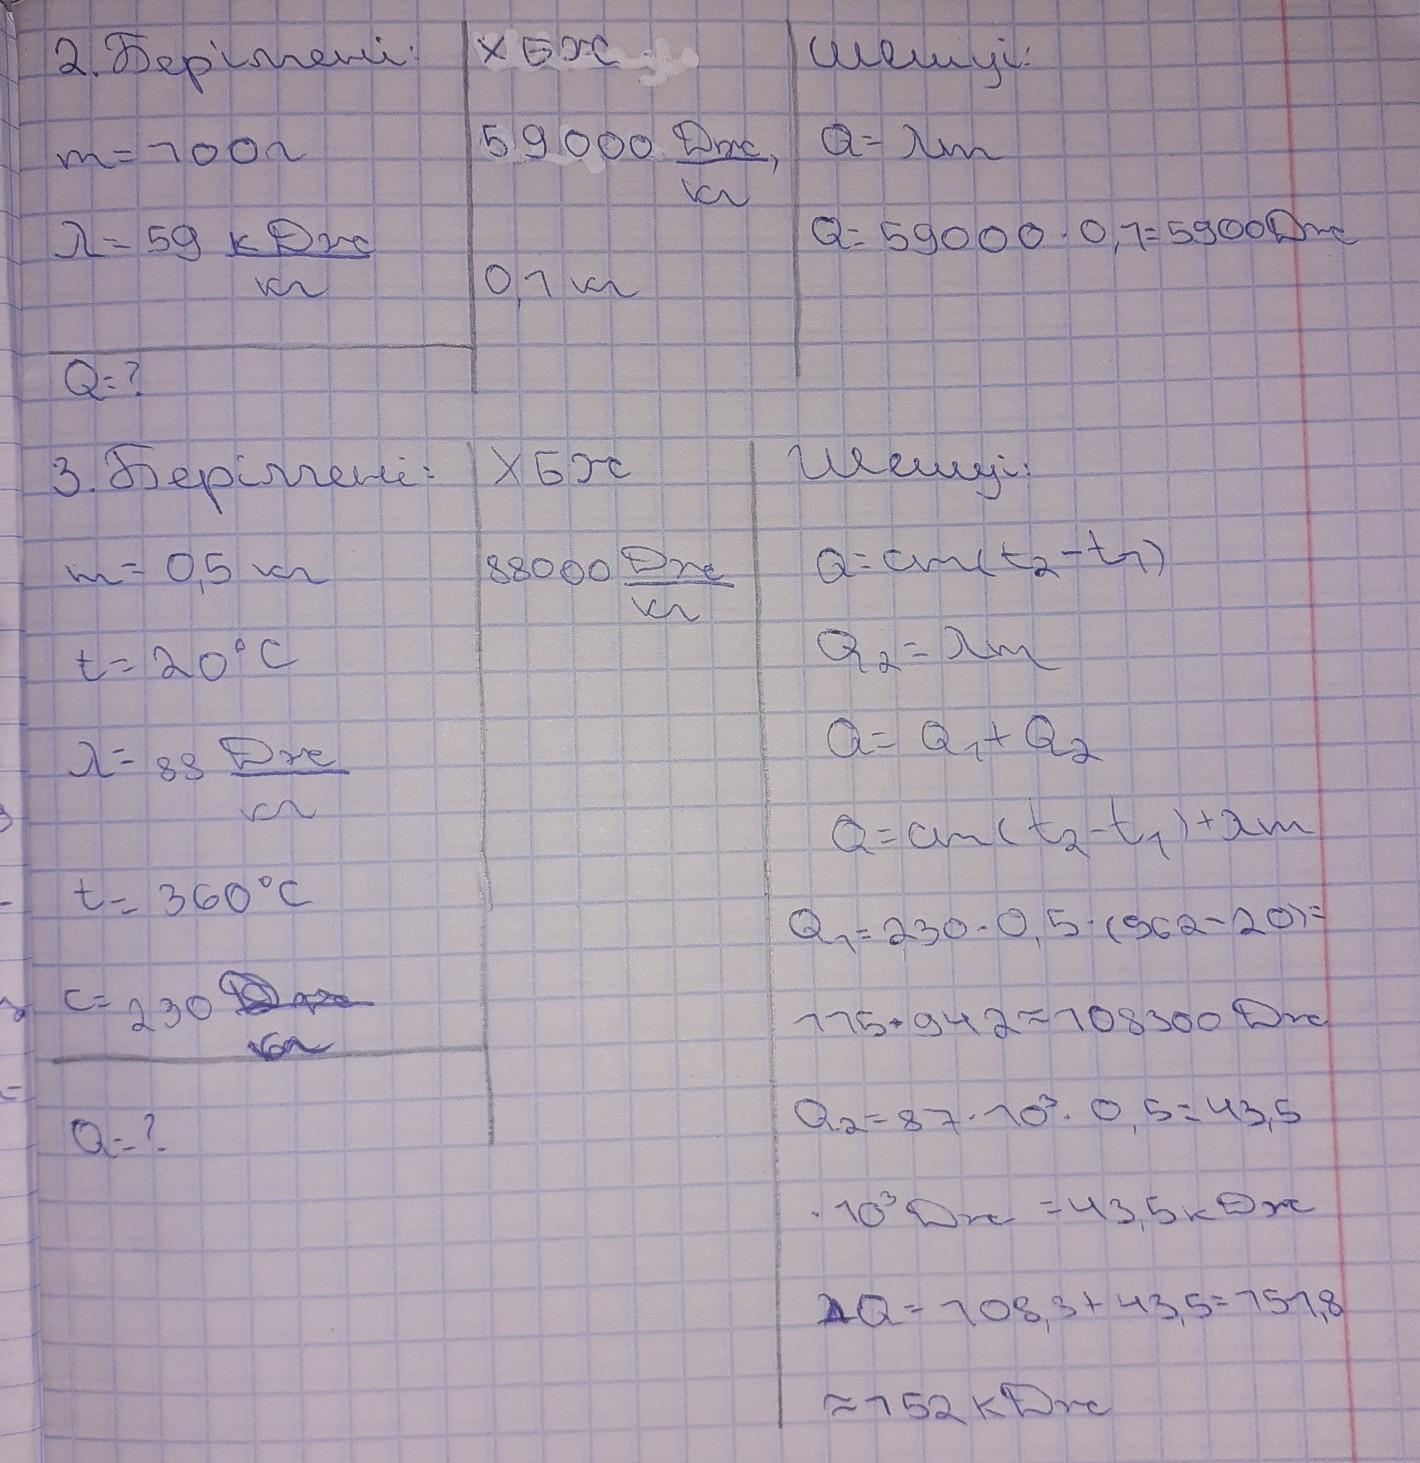 2. Берілгені:
m = 100г
λ = 59 кДж/кг
Q = ?
ХБЖ
59000 Дж/кг,
0,1 кг
Шешуі:
Q = λm
Q = 59000 · 0,1 = 5900Дж
3. Берілгені:
m = 0,5 кг
t = 20°C
λ = 88 Дж/кг
t = 360°C
c = 230
Q = ?
ХБЖ
88000 Дж/кг
Шешуі:
Q = cm(t₂ - t₁)
Q₂ = λm
Q = Q₁ + Q₂
Q = cm(t₂ - t₁) + λm
Q₁ = 230 · 0,5 · (962 - 20) =
115 · 942 ≈ 108300 Дж
Q₂ = 87 · 10³ · 0,5 = 43,5
· 10³ Дж = 43,5 кДж
Q = 108,3 + 43,5 = 151,8
≈ 152 кДж